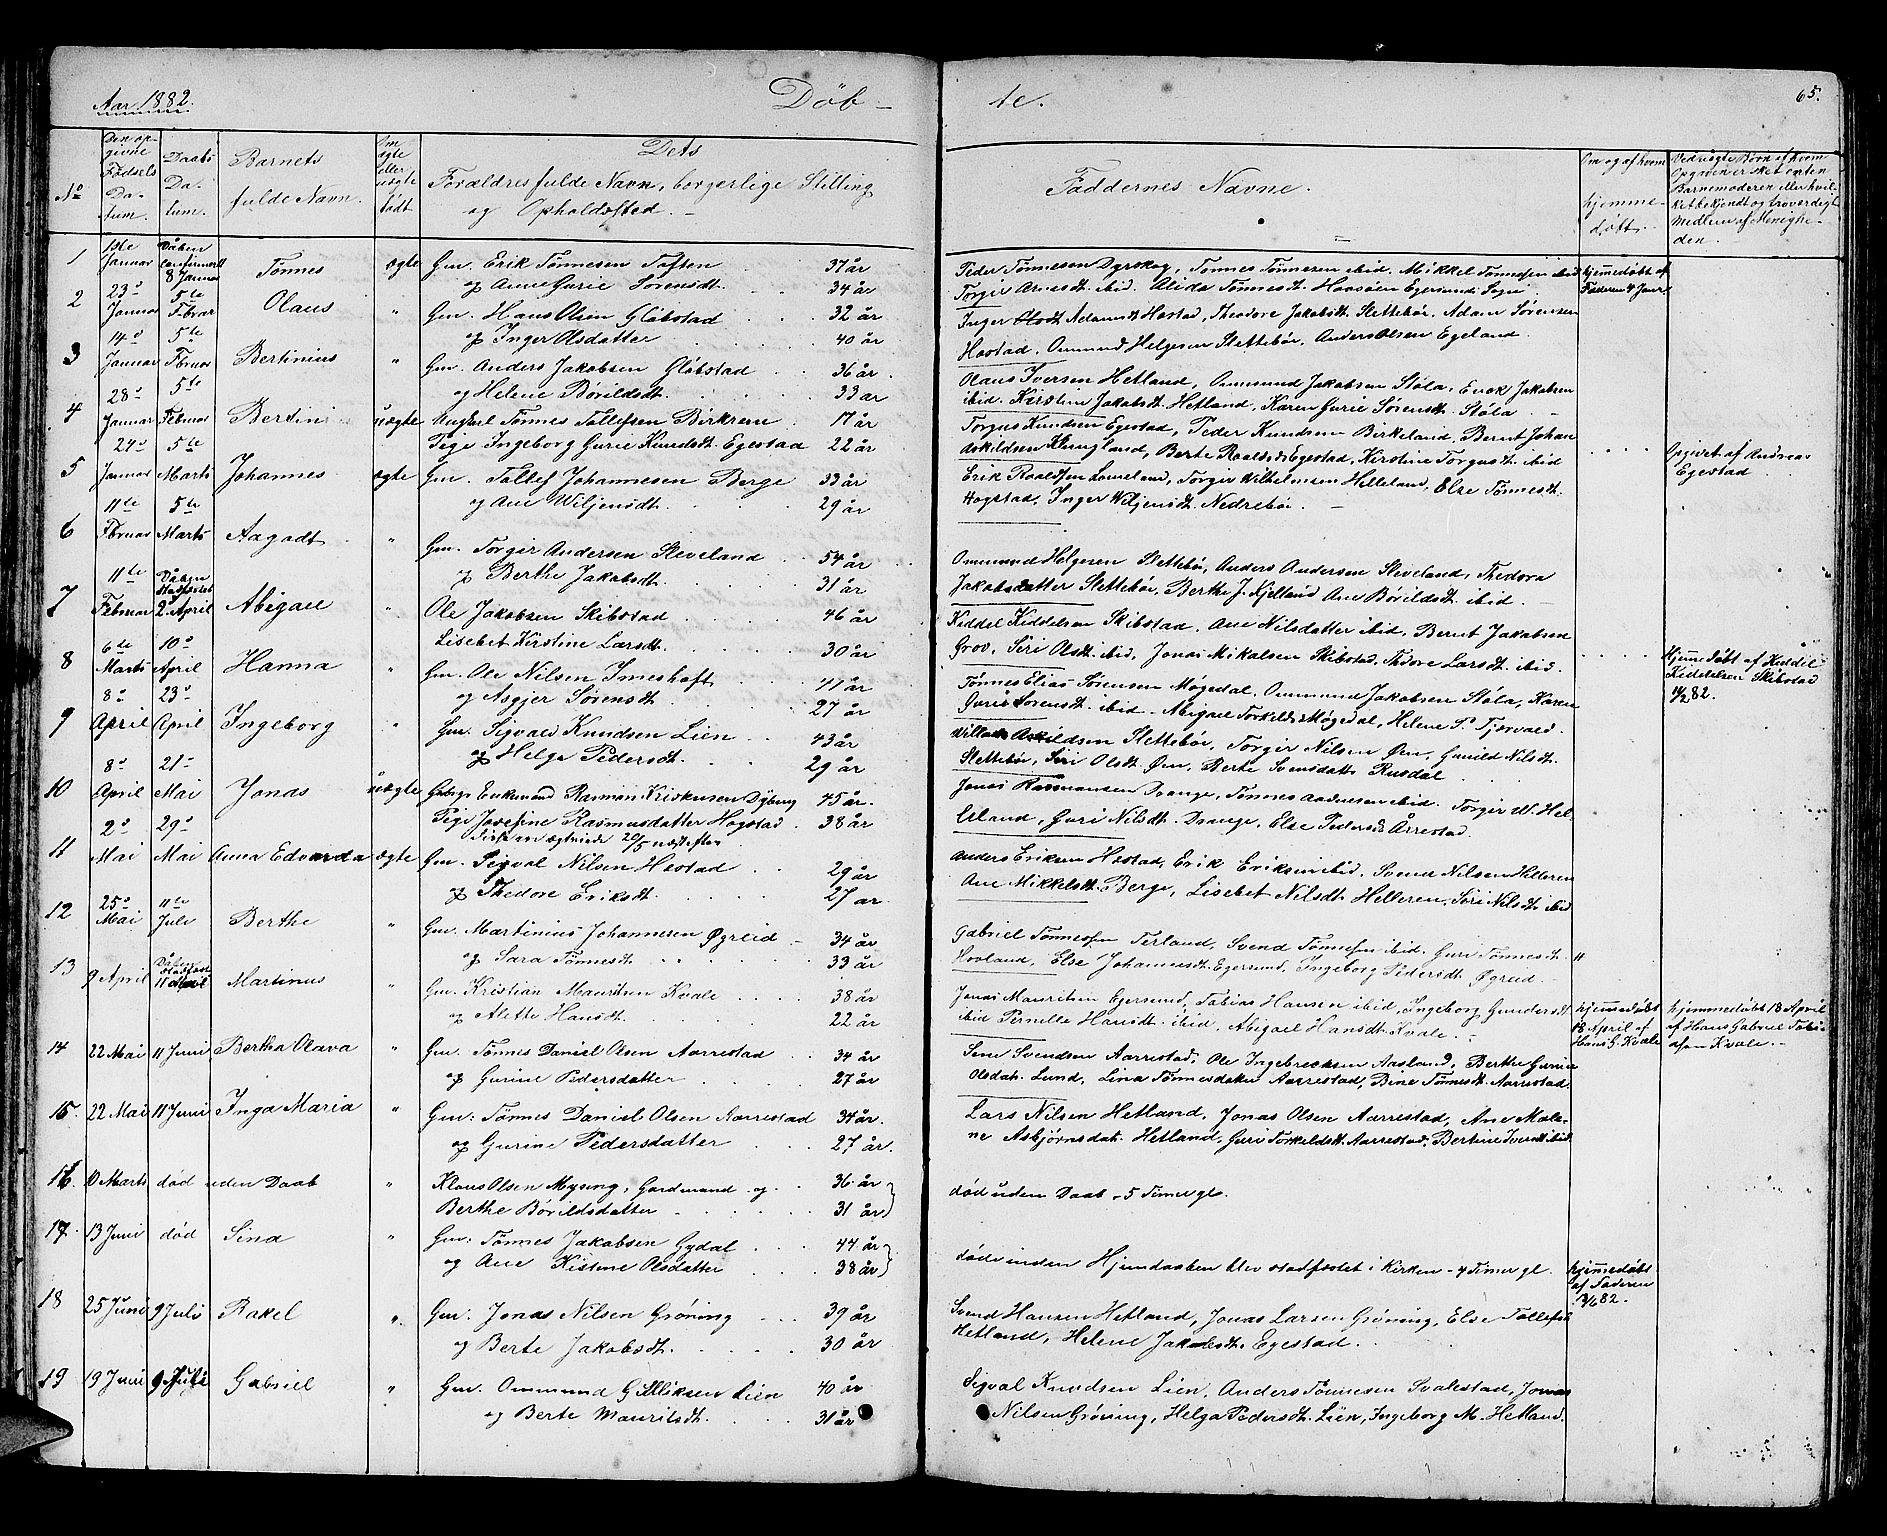 Aar 1882.
Døb-
te.
65.
No
Den op-
givne
Fødsels
Da-
tum.
Daabs
Da-
tum.
Barnets
fulde Navn.
Om
ægte
eller
uægte
født
Dets
Forældres fulde Navn, borgerlige Stilling
og Opholdssted.
Faddernes Navne.
Om og af hvem
hjemme-
døbt.
Ved uægte Børn af hvem
Opgiven er sket enten
Barnemoderen eller hvil-
ket bekjendt og troværdigt
Medlem af Menighe-
den.
1 1ste Januar Dåben confirmert 8 Januar Tønnes ægte Gm. Erik Tønnesen Toften 37 år
og Anne Gurie Sørensdt. 34 år
Peder Tønnesen Dyrskog, Tønnes Tønnesen ibid. Mikkel Tønnesen ibid
Torgir Arnesdt. ibid. Alida Tønnesdt. Egersunds Sogn
hjemmedøbt af
Faderen 4 Janr.
2 23de Januar 5te Febrar Olaus " Gm. Hans Olsen Gløbstad 32 år
og Inger Olsdatter 40 år
Inger Adamsdt. Hæstad, Theodore Jakobsdt. Slettebø. Adam Sørensen
Hæstad, Ommund Helgesen Slettebø, Anders Olsen Egeland.
3 14de Januar 5te Febrar Bertinius " Gm. Anders Jakobsen Gløbstad 36 år.
og Helene Børildsdt. 33 år
Olaus Iversen Hetland, Ommund Jakobsen Støla, Enok Jakobsen
ibid. Kirstin Jakobsdt. Hetland, Karen Gurie Sørensdt. Støla
4 28de Januar 5te Februar Bertini uægte Ungkarl Tønnes Tollefsen Birkrem 17 år
Pige Ingeborg Gurie Knudsdt. Egestad 22 år
Torgus Knudsen Egestad, Peder Knudsen Birkeland, Bernt Johan
Askildsen Klungland, Berte Roaldsd. Egestad, Kirstine Torgusdt. ibid
Opgivet af Andreas
Egestad
5 24de Januar 5te Marts Johannes ægte Gm. Tollef Johannesen Berge 33 år
og Ane Wiljensdt. 29 år
Erik Roaldsen Loueland, Torgir Wilhelmsen Helleland, Else Tønnesdt.
Hogstad, Inger Wiljensdt. Nedrebø.
6 11te Febrar 5te Marts Aagodt " Gm. Torgir Andersen Sleveland 54 år
og Berthe Jakobsdt. 31 år
Ommund Helgesen Slettebø, Anders Andersen Sleveland, Thedora
Jakobsdatter Slettebø, Berthe J. Kjelland, Ane Børildsdt. ibid.
7 11te Februar Dåben Stadfæstet 2 April Abigael " Ole Jakobsen Skibstad 46 år
Lisebet Kirstine Larsdt. 30 år
Kiddel Kiddelsen Skibstad, Ane Nilsdatter ibid, Bernt Jakobsen
Grov, Siri Olsdt. ibid, Jonas Mikalsen Skibstad, Thdore Larsdt. ibid.
Hjemmedøbt af Kiddel
Kiddelsen Skibstad
8 6te Marts 10de April Hanna " Gm. Ole Nilsen Imeshaft 41 år
og Asgjer Sørensdt. 27 år
Tønnes Elias Sørensen Møgedal, Ommund Jakobsen Støla, Karen
Gurie Sørensdt. ibid. Abigael Torkildsd. Møgedal, Helene P. Tjorvald.
9 8de April 23de April Ingeborg " Gm. Sigvald Knudsen Lien 43 år
og Helga Pedersdt. 29 år
Villads Askildsen Slettebø, Torgir Nilsen Øen, Gunild Nilsdt.
Slettebø, Siri Olsdt. Øen, Berte Svensdatter Rusdal
10 8de April 21de Mai Jonas uægte Enkemand Rasmus Kristensen Dyburg 45 år.
Pige Josefine Rasmusdatter Hogstad 38 år
Jonas Rasmussen Drange, Tønnes Aadnesen ibid. Torgir W. Hel-
leland, Guri Nilsdt. Drange, Else Pedersd. Årrestad.
11 2de Mai 29de Mai Anna Edvarda ægte Gm. Sigval Nilsen Hæstad 29 år
og Thedore Eriksdt. 27 år
Anders Eriksen Hæstad, Erik Eriksen ibid. Svend Nilsen Helleren
Ane Mikkelsdt. Berge, Lisebet Nilsdt. Helleren, Siri Nilsdt. ibid
12 25de Mai 11te Juli Berthe " Gm. Martinius Johannesen Øgreid 34 år
og Sara Tønnesdt. 33 år
Gabriel Tønnessen Terland, Svend Tønnesen ibid. Guri Tønnesdt.
Hovland, Else Johannesdt. Egersund, Ingeborg Pedersdt. Øgreid
13 9 April Dåben Stadfæst. Martinus " Gm. Kristian Mauritsen Kvale 38 år
og Alette Hansdt. 22 år
Jonas Mauritsen Egersund, Tobias Hansen ibid, Ingeborg Gundersdt
ibid Pernille Hansdt. ibid, Abigael Hansdt. Kvale.
hjemmedøbt
18 April af
Hans G. Kvale
hjemmedøbt 18 April
af Hans Gabriel Tobi-
asen Kvale.
14 22 Mai 11 Juni Bertha Olava " Gm. Tønnes Daniel Olsen Aarrestad 34 år
og Gurine Pedersdatter 27 år
Svend Svendsen Aarrestad, Ole Ingebretsen Aasland, Berthe Gurine
Olsdat. Lund, Lina Tønnesdatter Aarrestad, Bine Tønnesdt. Aarrestad.
15. 22 Mai 11 Juni Inga Maria " Gm: Tønnes Daniel Olsen Aarrestad 34 år.
og Gurine Pedersdatter 27 år.
Lars Nilsen Hetland, Jonas Olsen Aarrestad, Ane Male-
ne Asbjørnsdat. Hetland, Guri Torkildsdt. Aarrestad, Bertine Iversdt ibid.
16. 10 Marts død uden Daab " Klaus Olsen Mysing, Gardmand og 36 år
Berthe Børildsdatter 31 år
død uden Daab - 5 Timer gl.
17. 13 Juni død Sina " Gm: Tønnes Jakobsen Gydal 44 år
og Ane Kistine Olsdatter 38 år
døde inden Hjemdaaben blev stadfæstet i Kirken - 4 Timer gl.
hjemmedøbt
af Faderen
18 25 Juni 9 Juli Rakel " Gm. Jonas Nilsen Grøning 39 år
og Berte Jakobsdt. 30 år
Svend Hansen Hetland, Jonas Larsen Grøning, Else Tollefsd.
Hetland, Helene Jakobsdt. Egestad.
19 19 Juni 9 Juli Gabriel " Gm. Ommund Gabrielsen Lien 40 år
og Berte Mauritsdt. 31 år
Sigval Knudsen Lien, Anders Tønnesen Svalestad, Jonas
Nilsen Grøning, Helga Pedersdt. Lien, Ingeborg M. Hetland.